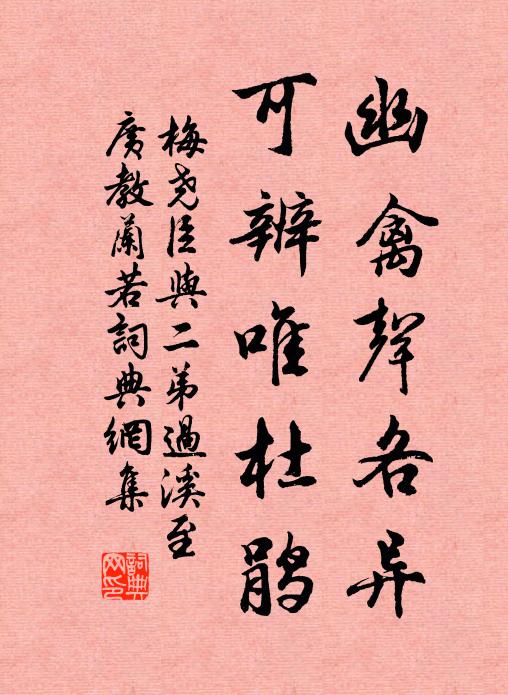 幽禽聲各异
可辨唯杜鹃
梅尧臣與二弟過溪至
廣教蘭若詞典網集
詞典網印